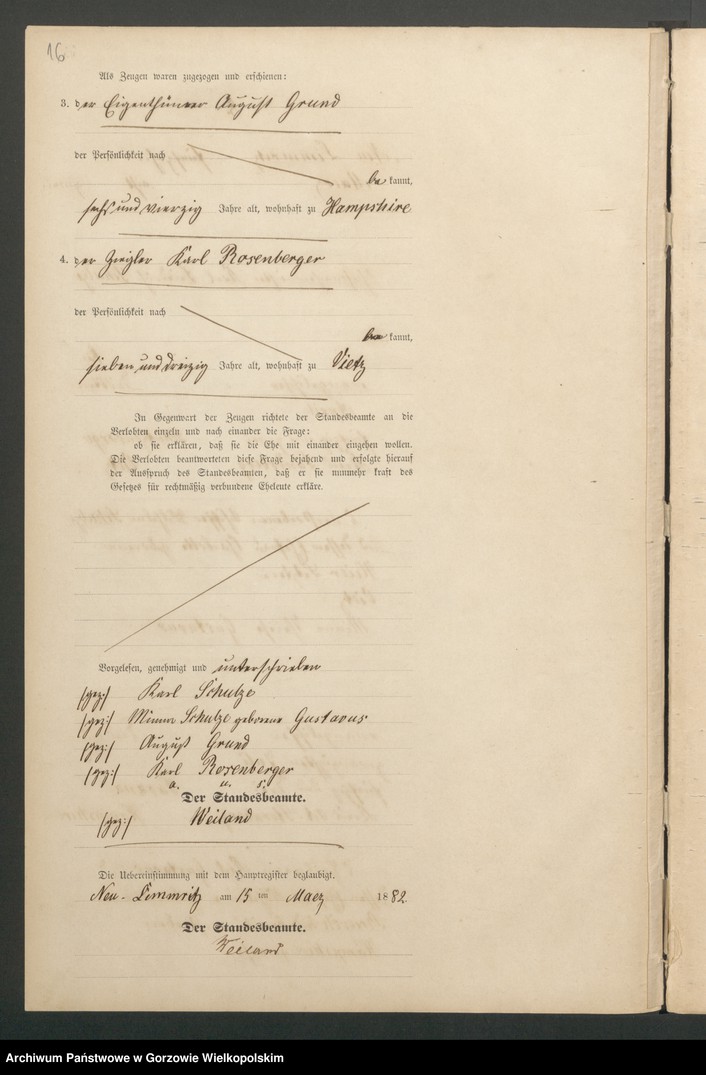 16
Als Zeugen waren zugezogen und erschienen:
3. der Eigenthümer August Grund
der Persönlichkeit nach
be kannt,
sechs und vierzig Jahre alt, wohnhaft zu Hampshire
4. der Ziegler Karl Rosenberger
der Persönlichkeit nach
be kannt,
sieben und dreizig Jahre alt, wohnhaft zu Vietz
In Gegenwart der Zeugen richtete der Standesbeamte an die
Verlobten einzeln und nach einander die Frage:
ob sie erklären, daß sie die Ehe mit einander eingehen wollen.
Die Verlobten beantworteten diese Frage bejahend und erfolgte hierauf
der Ausspruch des Standesbeamten, daß er sie nunmehr kraft des
Gesetzes für rechtmäßig verbundene Eheleute erkläre.
Vorgelesen, genehmigt und unterschrieben
/gez:/ Karl Schulze
/gez:/ Minna Schulze geborene Gustavus
/gez:/ August Grund
/gez:/ Karl Rosenberger
a. u. s.
Der Standesbeamte.
/gez:/ Weiland
Die Uebereinstimmung mit dem Hauptregister beglaubigt.
Neu-Limmritz am 15 ten Maerz 1882.
Der Standesbeamte.
Weiland
Archiwum Państwowe w Gorzowie Wielkopolskim